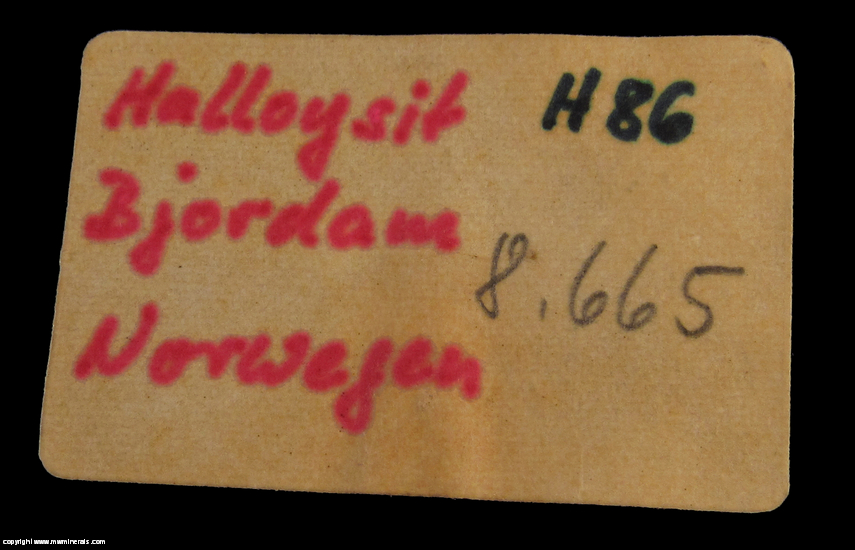 Halloysit H86
Bjordam
8.665
Norwegen
copyright www.mwminerals.com